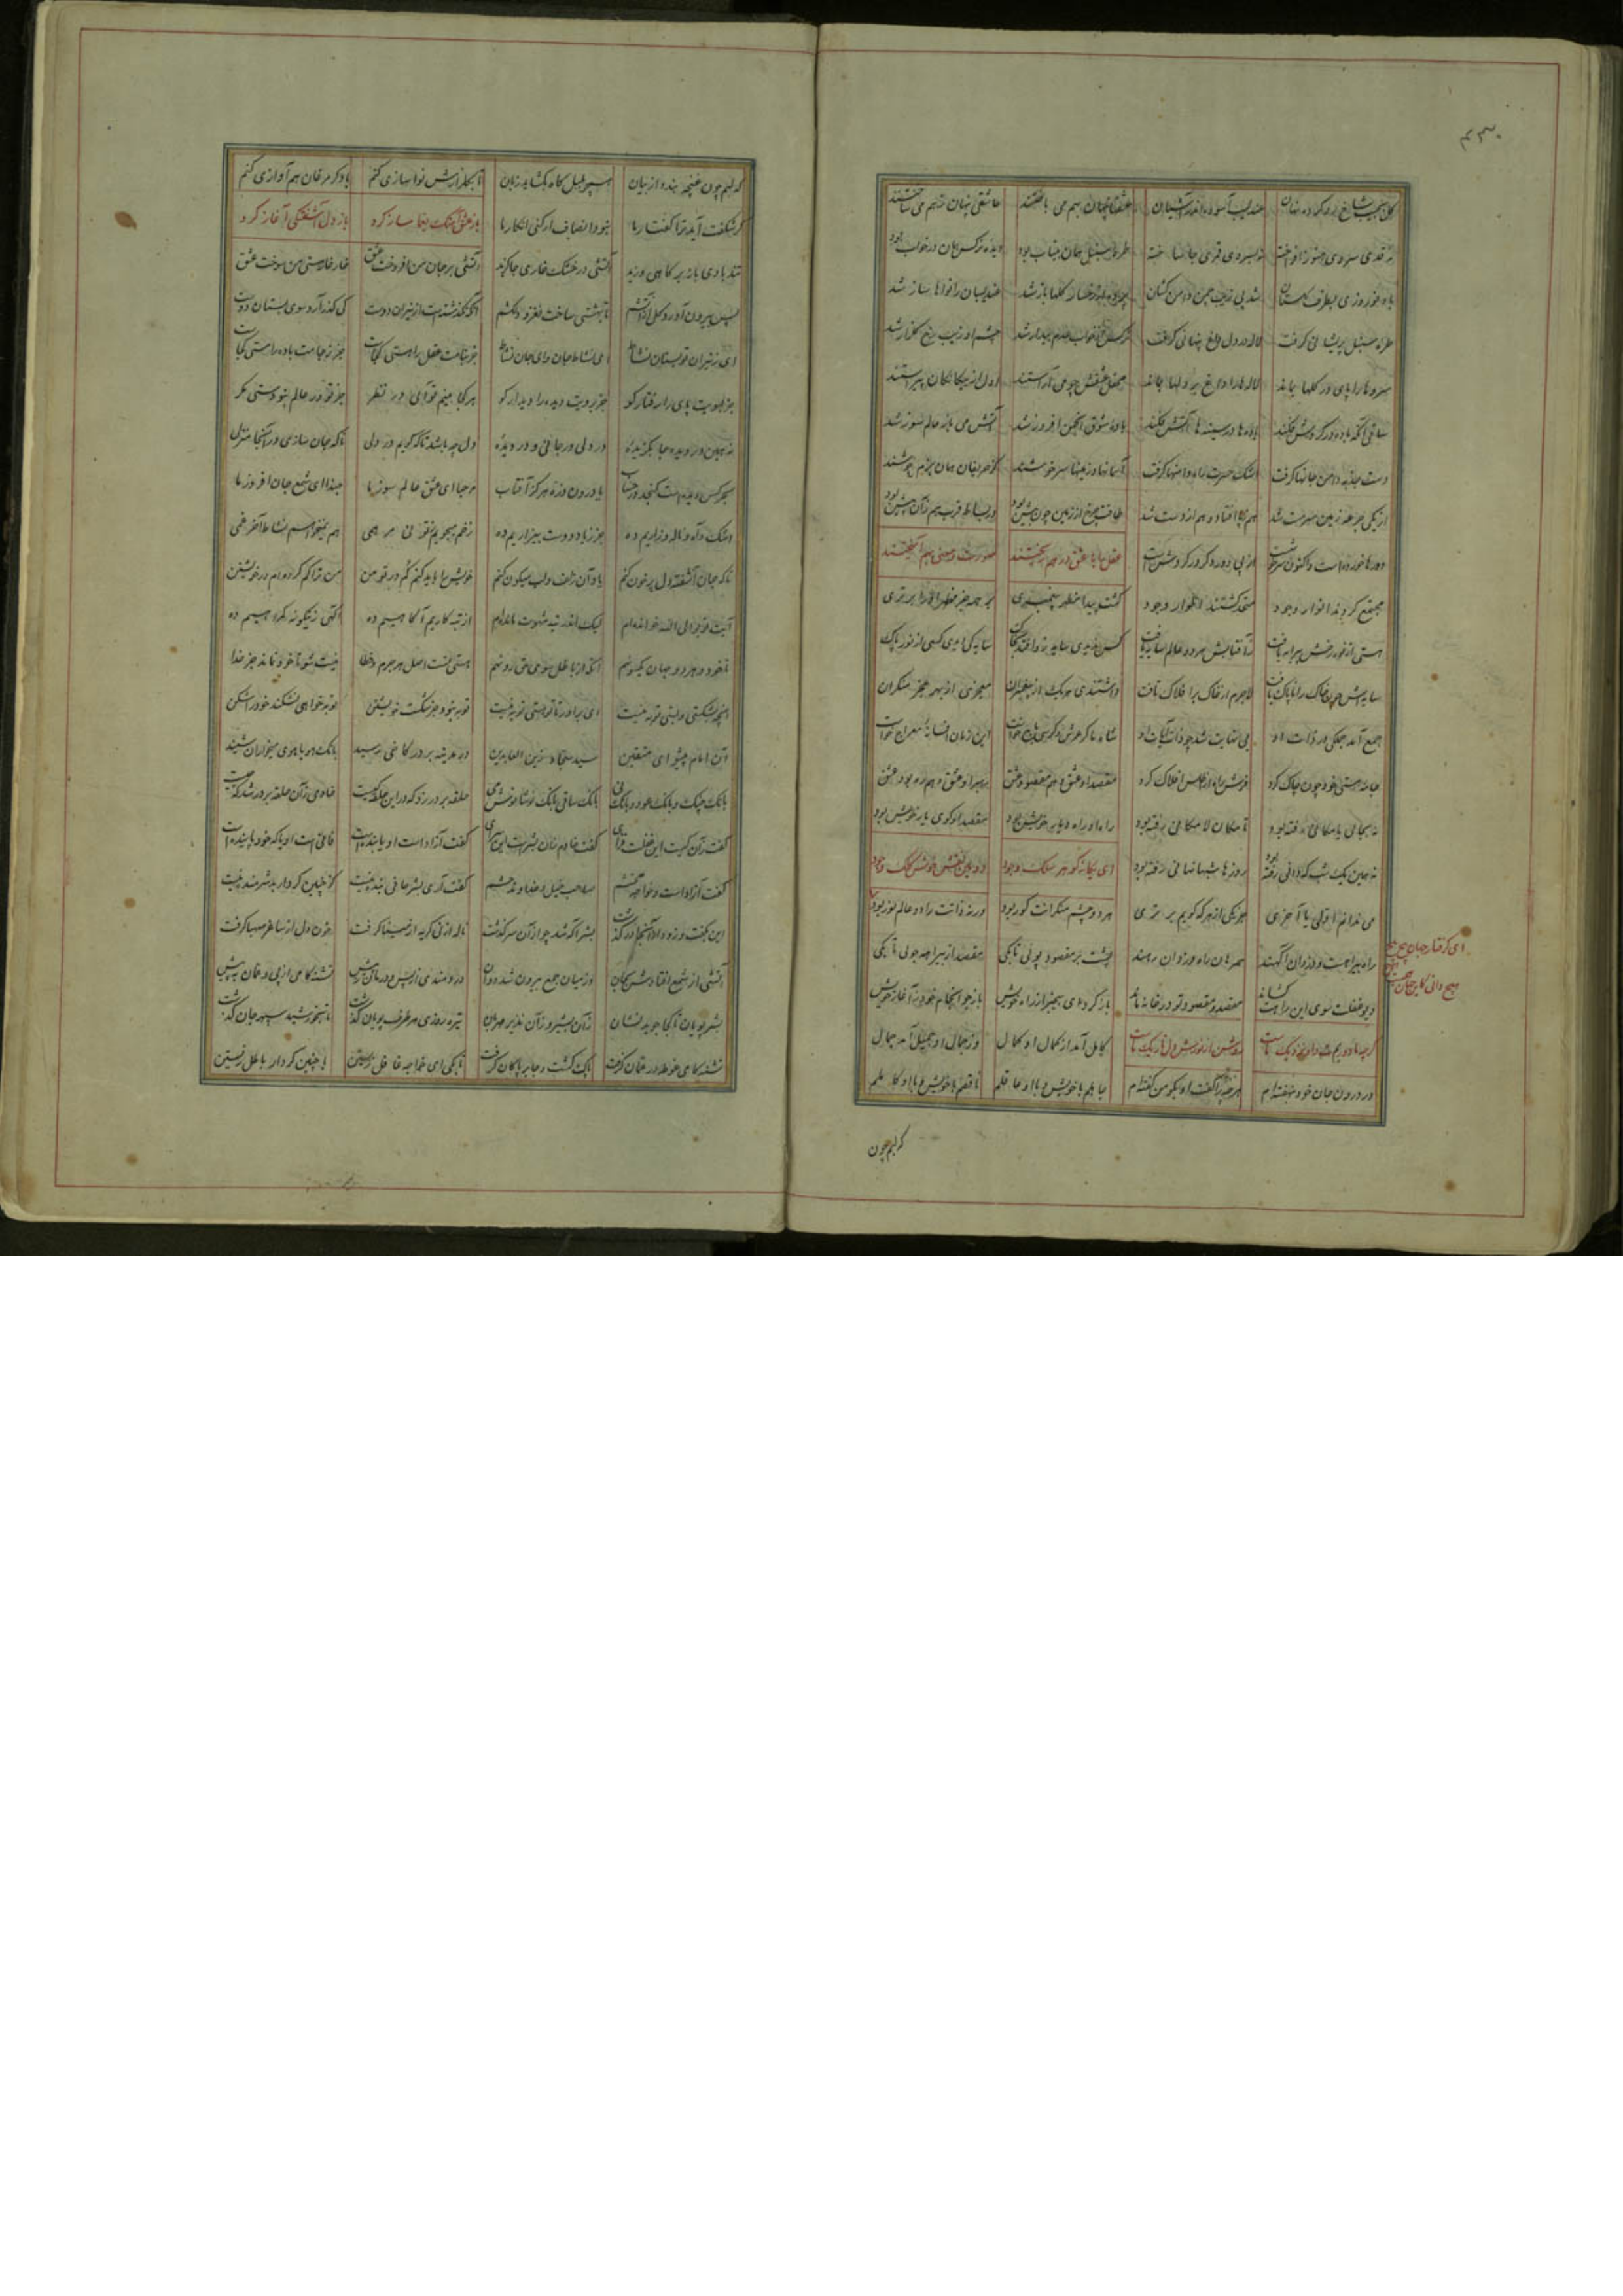 ۴۳۰
گل بجیب شاخ در و کرده نهان عندلیب آسوده اندر آشیان عشقشان پنهان بهم می باختند عاشقی پنهان ز هم می ساختند
نه قدی سروی هنوز افراخته نه بسروی قمری جا ساخته طره سنبل همان بیتاب بود دیده نرگس همان در خواب بود
باد نوروزی بطرف گلستان شد پی زیب چمن دامن کشان پرده از رخسار گلها باز شد عندلیبان را نواها ساز شد
طره سنبل پریشانی گرفت لاله در دل داغ پنهانی گرفت نرگس از خواب عدم بیدار شد چشم او زیب رخ گلزار شد
سروها را پای در گلها بماند لاله ها را داغ بر دلها بماند محفل عشقش چو می آراستند اول از بیگانگان پیراستند
ساقی آنکه باده در گردش فکند باده ها در سینه ها آتش فکند باده شوق انجمن افروز شد آتش می باز عالم سوز شد
دست جذبه دامن جانها گرفت اشک حسرت راه دامنها گرفت آسمانها و زمینها سرخوشند کز حریفان همان بزم خوشند
از یکی جرعه زمین سرمست شد هم ز پا افتاد و هم از دست شد
دورها خورده است و اکنون سرخوشست از پی دور دگر در گردش است عقل ها با عشق در هم ریختند صورت و معنی بهم آمیختند
مجتمع گردیدند انوار وجود متحد گشتند اطوار وجود گشت پیدا مظهر پیغمبری بر همه جز مظهر او را برتری
هستی از نور رخش پیرایه یافت ز آفتابش هر دو عالم سایه یافت سایه کی دیدی کسی از نور پاک
سایه اش چون خاک را ناپاک یافت لاجرم از خاک بر افلاک تافت داشتندی هر یک از پیغمبران معجزی از بهر عجز منکران
جمع آمد جملگی در ذات او بی نهایت شد چو ذات آیات او شاه ما کز عرش و کرسی تاج خواست این زمان افسانه معراج خواست
جامه هستی خود چون چاک کرد فرش راه از اطلس افلاک کرد مقصد او عشق و هم مقصود عشق رهبر او عشق و همره بود عشق
نه بجائی یا مکانی رفته بود تا مکان لامکانی رفته بود راه او راه دیار خویش بود مقصد او کوی یار خویش بود
نه همین یک شب که دانی رفته بود روزها شبها نهانی رفته بود ای یگانه گوهر سلک وجود
می ندانم اولی یا آخری هر یکی از هر که گویم برتری هر دو چشم منکرانت کور بود ورنه ذاتت را دو عالم نور بود
راه بیراهست و دزدان آگهند همرهان راه دزدان رهند پشت بر مقصود پوئی تا بکی مقصد از بیراهه جوئی تا بکی
دیو غفلت سوی این راهت کشاند مقصد و مقصود تو در خانه ماند باز گرد ای بیخبر از راه خویش باز جو انجام خود ز آغاز خویش
گرچه ما دوریم شاه او نزدیک ماست روشن از نورش دل تاریک ماست کامل آمد از کمال او کمال وز جمال او جمیل آمد جمال
در درون جان خود بنهفته ام هر چه را گفت او بگو من گفته ام جاهلم با خویش و با او عاقلم ناقصم با خویش و با او کاملم
ای گرفتار جهان هیچ هیچ
هیچ دانی کاین جهان
گر لبم چون
گر لبم چون غنچه بندد از بیان همچو بلبل گاه بگشاید زبان تا بگلزارش نواسازی کنم با دگر مرغان هم آوازی کنم
گر شگفت آید ترا گفتار ما خود و انصاف ار کنی انکار ما باز عشق آهنگ یغما ساز کرد باز دل آشفتگی آغاز کرد
تند بادی باز بر کاهی وزید آتشی در خشک خاری جا گزید آتشی بر جان من افروخت عشق خار خار هستی من سوخت عشق
پس برون آورد گل از آتشم تا بهشتی ساخت نغز و دلکشم آنکه نگذشته است از نیران دوست کی گذر آرد سوی بستان دوست
ای ز نیران تو بستان نشاط ای نشاط جان و ای جان نشاط جز بنامت عقل را مستی کجاست جز ز جامت باده را مستی کجاست
جز بسویت پای را رفتار کو جز برویت دیده را دیدار کو هر کجا بینم توآئی در نظر جز تو در عالم بنود هستی مگر
نه همین در دیده جا بگزیده در دلی در جانی و در دیده دل چه باشد تا که گویم در دلی تا که جان سازی در آنجا منزلی
یا درون ذره هرگز آفتاب مرحبا ای عشق عالم سوز ما حبذا ای شمع جان افروز ما
اشک و آه و ناله و زاریم ده جز ز یاد دوست بیزاریم ده زخم میجویم ز تو نی مرهمی هم نمیخواهم نشاط آخر غمی
تا که جان آشفته دل پر خون کنم یاد آن زلف و لب میگون کنم خویش را باید کنم گم در تو من من ترا گم کرده ام در خویشتن
آیت توبوا الی الله خوانده ام لیک اندر تیه شهوت مانده ام از تبه کاریم آگاهیم ده آگهی زینگونه گمراهیم ده
تا خود و هر دو جهان یکسو نهم آنکه از باطل سوی حق رو نهم هستی تست اصل هر جرم و خطا نیست شو تا خود نماند جز خدا
آنچه بشکستی و بستی توبه نیست ای برادر تا تو هستی توبه نیست توبه نبود جز شکست خویشتن توبه خواهی نشکند خود را شکن
آن امام پیشوای متقین سید سجاد زین العابدین در مدینه بر در کاخی رسید بانگ هو یا هوی میخواران شنید
بانگ چنگ و بانگ عود و بانگ نی بانگ ساقی بانگ نوشانوش می حلقه بر در زد که در این حلقه کیست خادمی زان حلقه بر در شد که چیست
گفت زان کیست این عشرت سرای گفت خادم زان بشر است این سرای گفت آزاد است او یا بنده است فانی است او یا که خود پاینده است
گفت آزاد است و خواجه محتشم صاحب خیل و خدام و حشم گفت آری بشر حافی بنده نیست کز چنین کردار بد شرمنده نیست
این بگفت و زود از آنجا در گذشت بشر آگه شد چو از آن سرگذشت ناله از نی گریه از مینا گرفت خون دل از ساغر صهبا گرفت
آتشی از شمع افتادش بجان وز میان جمع بیرون شد دوان دردمندی از پس و درمانش پیش تشنه کامی از پی و عمان به پیش
بشر پویان تا کجا جوید نشان زان بشیر و زان نذیر مهربان تیره روزی هر طرف پویان گذشت تا بخورشید سپهر جان گذشت
تشنه کامی غوطه در عمان گرفت پاک گشت و جا بر پاکان گرفت تا بکی ای خواجه غافل زیستن با چنین کردار باطل زیستن